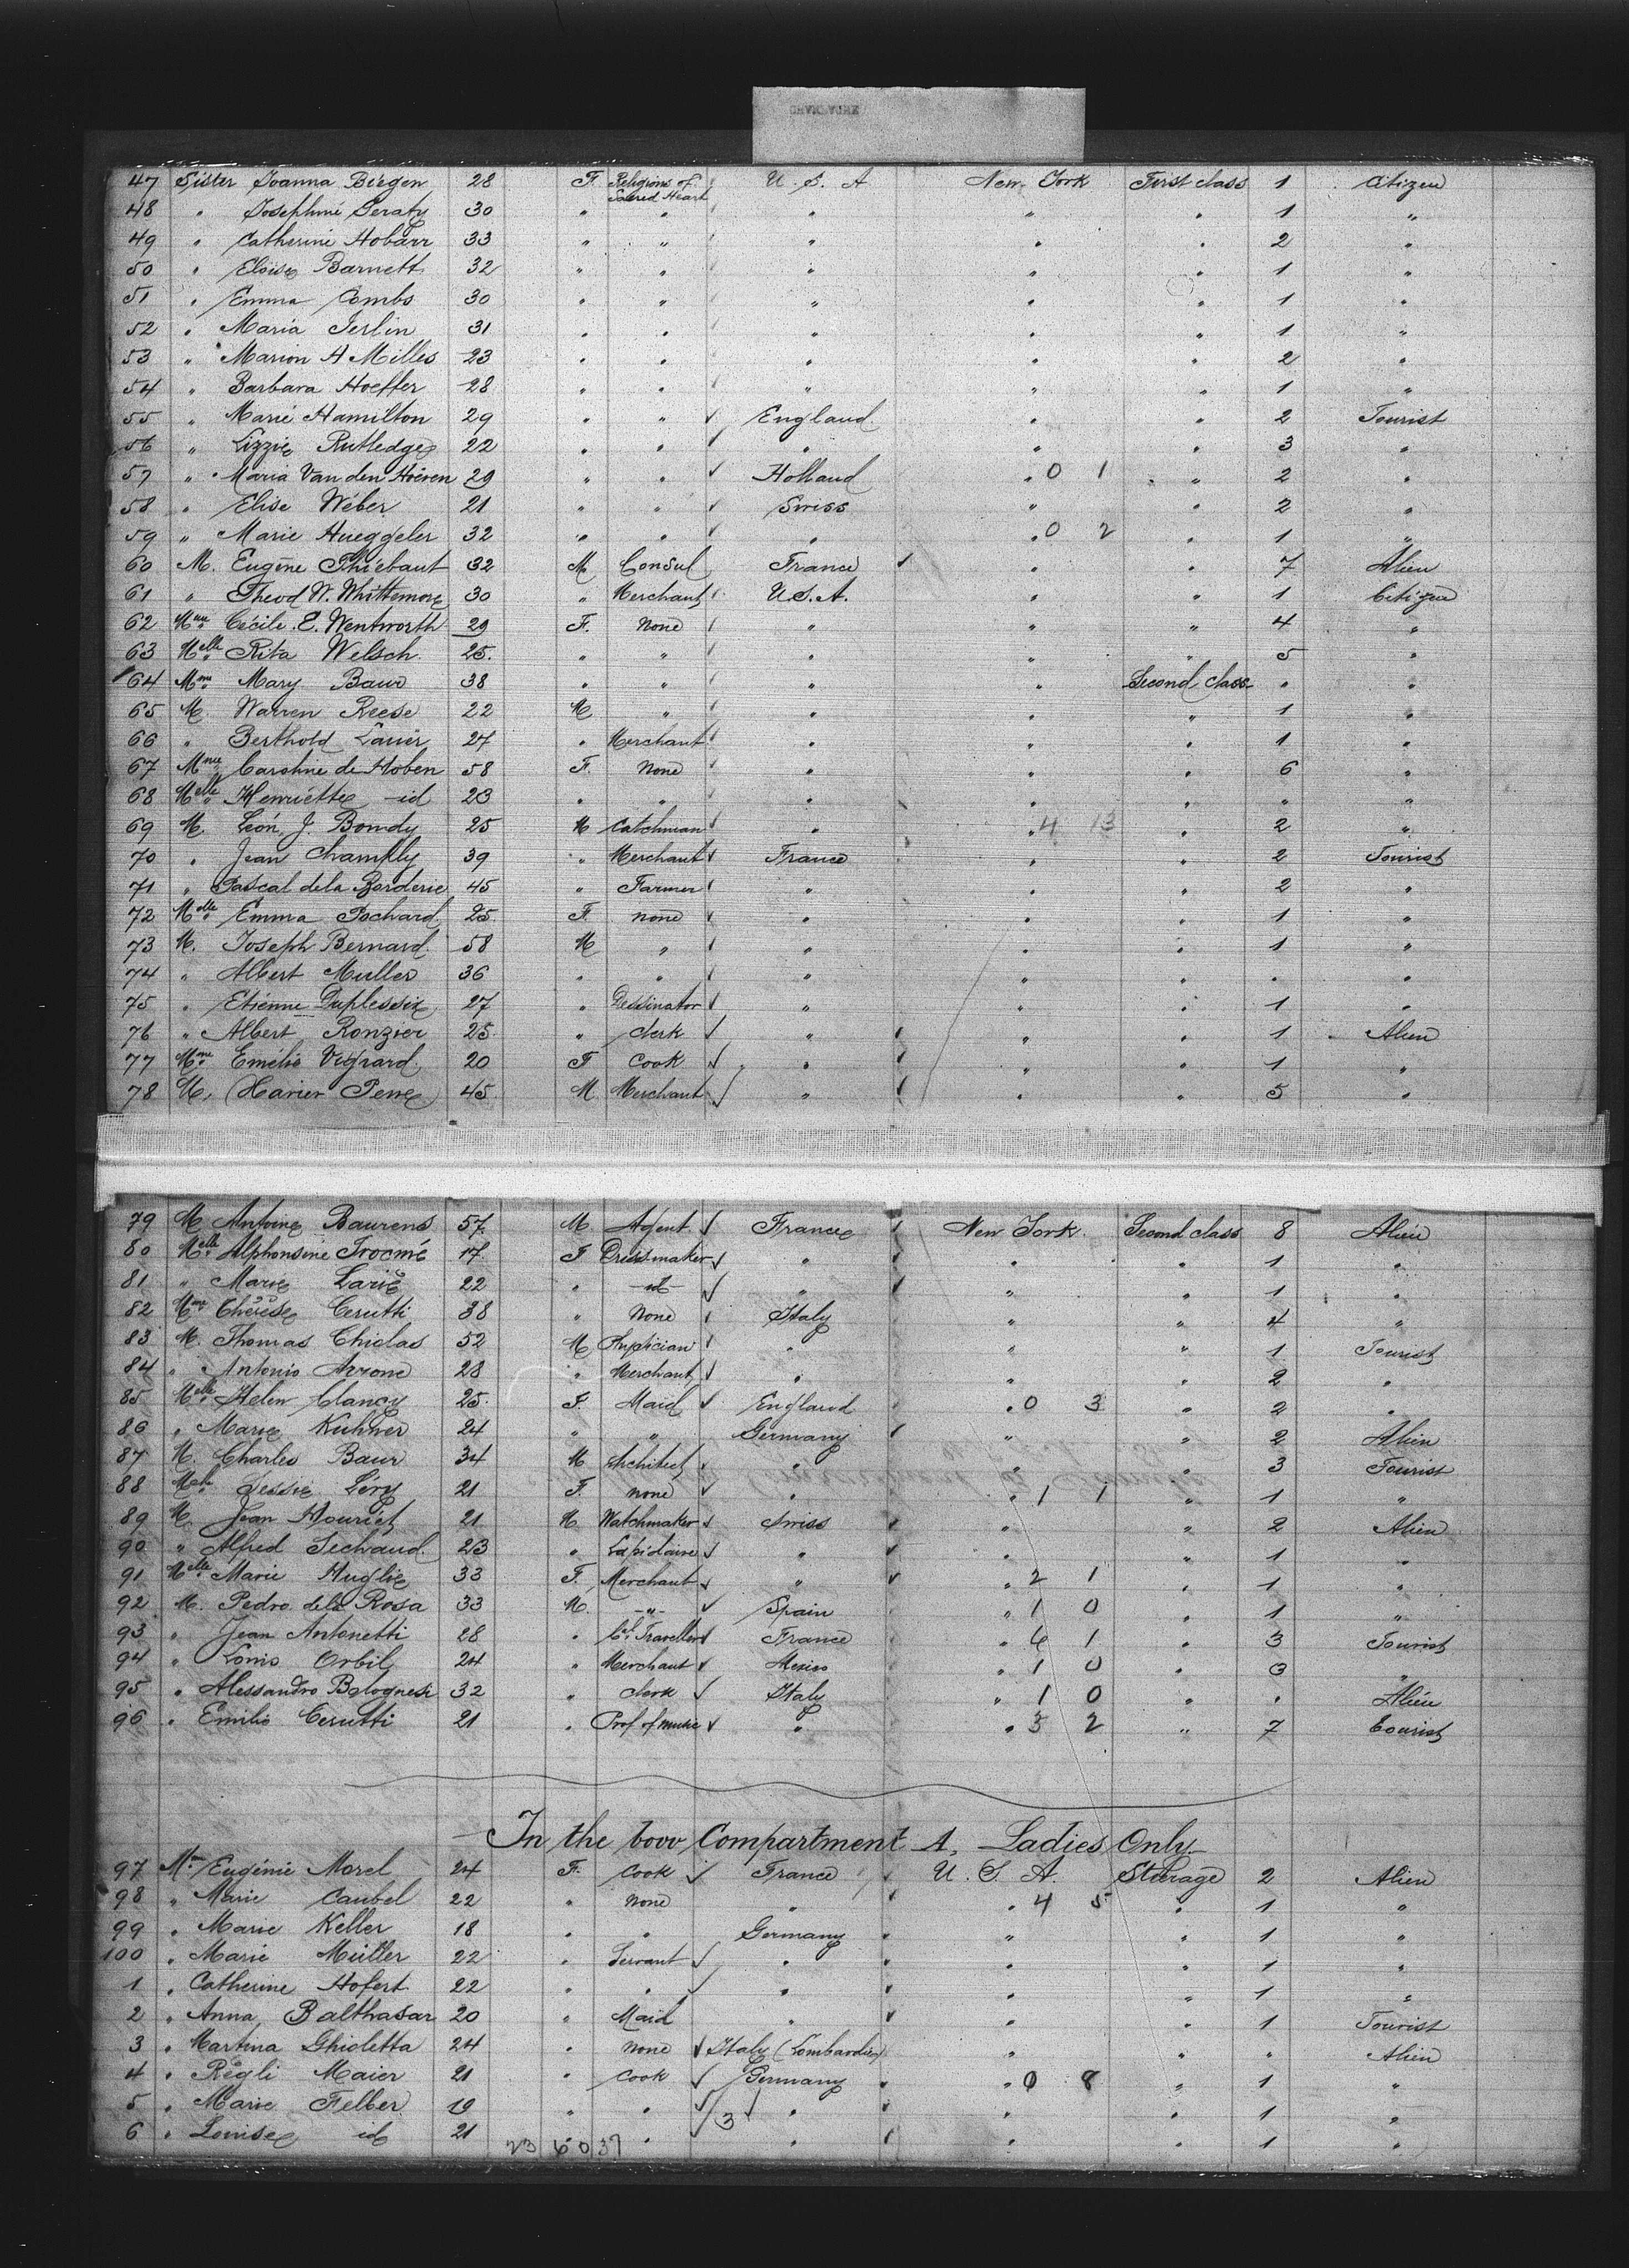 47 Sister Joanna Biegen 28 F. Religions of Sacred Heart U. S. A New York First class 1 Citizen
48 " Josephine Geraty 30 " " " " " 1 "
49 " Catherine Hobarr 33 " " " " " 2 "
50 " Eloïse Barnett 32 " " " " " 1 "
51 " Emma Combs 30 " " " " " 1 "
52 " Maria Jerlin 31 " " " " " 1 "
53 " Marion A Milles 23 " " " " " 2 "
54 " Barbara Hoeffer 28 " " " " " 1 "
55 " Marie Hamilton 29 " " England " " 2 Tourist
56 " Lizzie Rutledge 22 " " " " " 3 "
57 " Maria Van den Hoeven 29 " " Holland " 0 1 " 2 "
58 " Elise Wéber 21 " " Swiss " " 2 "
59 " Marie Hueggeler 32 " " " " 0 2 " 1 "
60 M. Eugène Thiébaut 32 M Consul France " " 7 Alien
61 " Theod W. Whittemore 30 " Merchant U.S.A. " " 1 Citizen
62 Mme Cécile E. Wentworth 29 F. None " " " 4 "
63 Melle Rita Welsch 25. " " " " " 5 "
64 Mme Mary Baur 38 " " " " Second class " "
65 M. Warren Reese 22 M " " " " 1 "
66 " Berthold Lauer 27 " Merchant " " " 1 "
67 Mme Caroline de Hoben 58 F. None " " " 6 "
68 Melle Henriette id 23 " " " " " " "
69 M. Léon J. Bondy 25 M Catchman " " 4 13 " 2 "
70 " Jean Champly 39 " Merchant France " " 2 Tourist
71 " Pascal de la Borderie 45 " Farmer " " " 2 "
72 Melle Emma Pochard 25 F. none " " " 1 "
73 M. Joseph Bernard 58 M " " " " 1 "
74 " Albert Muller 36 " " " " " " "
75 " Etienne Duplessix 27 " Dessinator " " " 1 "
76 " Albert Ronzier 25 " clerk " " " 1 Alien
77 Mme Emélie 20 F Cook " " " 1 "
78 M. Xavier 45 M Merchant " " " 5 "
79 M Antoine Baurens 57 M Agent France New York Second class 8 Alien
80 Melle Alphonsine Trocmé 17 F Dressmaker " " " 1 "
81 " Marie Larié 22 " id " " " 1 "
82 Mme Thérèse Cerutti 38 " None Italy " " 4 "
83 M. Thomas Chiolas 52 M Physician " " " 1 Tourist
84 " Antonio Arrone 28 " Merchant " " " 2 "
85 Melle Helen Clancy 25 F. Maid England " 0 3 " 2 "
86 " Marie Kuhner 24 " " Germany " " 2 Alien
87 M. Charles Baur 34 M Architect " " " 3 Tourist
88 Melle Jessie Léry 21 F. none " " 1 1 " 1 "
89 M. Jean Houriet 21 M Watchmaker Swiss " " 2 Alien
90 " Alfred Sechaud 23 " Lapidaire " " " 1 "
91 Melle Marie Huglie 33 F. Merchant " " 2 1 " 1 "
92 M. Pedro dela Rosa 33 M. -"- Spain " 1 0 " 1 "
93 " Jean Antonetti 28 " Cl Traveller France " 6 1 " 3 Tourist
94 " Louis Orbil 24 " Merchant Mexico " 1 0 " 3 "
95 " Alessandro Bolognesi 32 " clerk Italy " 1 0 " " Alien
96 " Emilio Cerutti 21 " Prof of music " " 3 2 " 7 Tourist
In the bow Compartment A, Ladies Only
97 Me Eugénie Morel 24 F. Cook France U. S. A. Steerage 2 Alien
98 " Marie Caubel 22 " None " " 4 5 " 1 "
99 " Marie Keller 18 " " Germany " " 1 "
100 " Marie Müller 22 " Servant " " " 1 "
1 " Catherine Hofert 22 " " " " " 1 "
2 " Anna Balthasar 20 " Maid " " " 1 Tourist
3 " Martina Ghioletta 24 " None Italy (Lombardie) " " " Alien
4 " Régli Maier 21 " Cook Germany " 0 8 " 1 "
5 " Marie Felber 19 " " 3 " " " 1 "
6 " Louise id 21 " " " " " 1 "
23 6 0 37